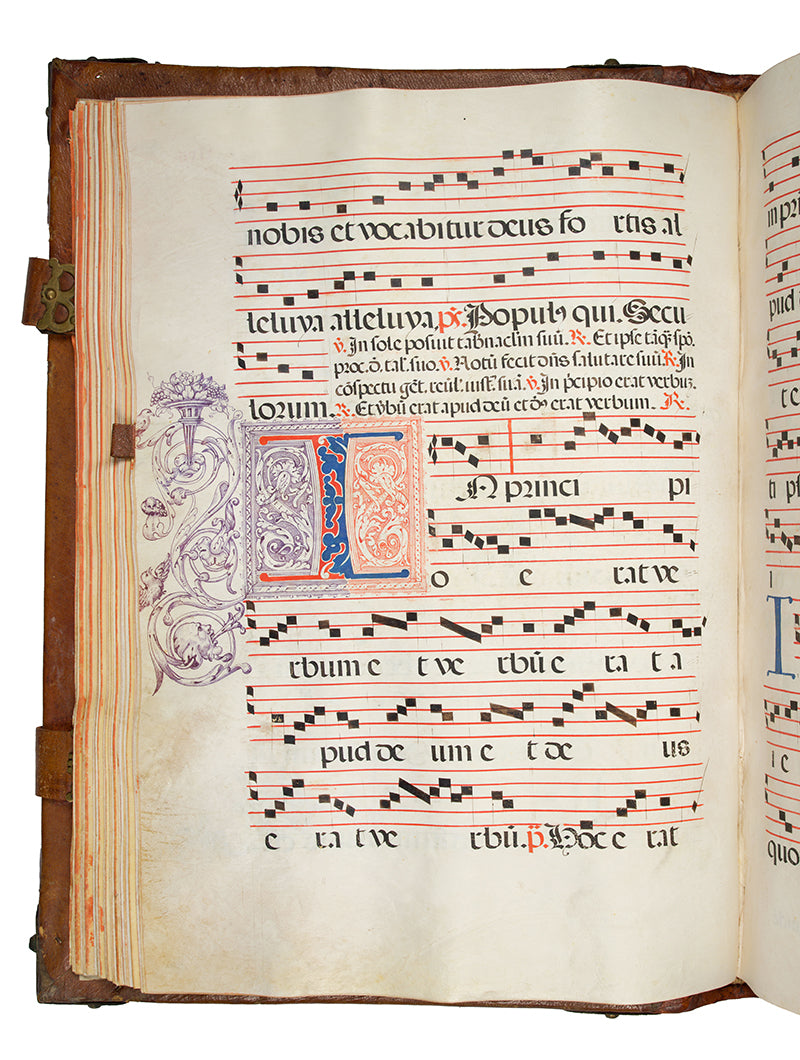 nobis et vocabitur deus fo rtis al
leluya alleluya. ps. Populꝰ qui. Secu
℣. In sole posuit tabnaclm suū. R. Et ipse tāq̄ spō.
proc. d. tal. suo. ℣. Notū fecit dn̄s salutare suū. R. In
cōspectu gēt. reūl. iust. suā. ℣. In p̄cipio erat verbuꝫ.
lorum. R. Et v̄bū erat apud deū et d̄s erat verbum. R.
IN princi pi
o e rat ve
rbum e t ve rbū e ra t a
pud de um e t de us
e ra t ve rbū. p̄. Hoc e rat
in pri
pud
te
ti
I
ie
quo